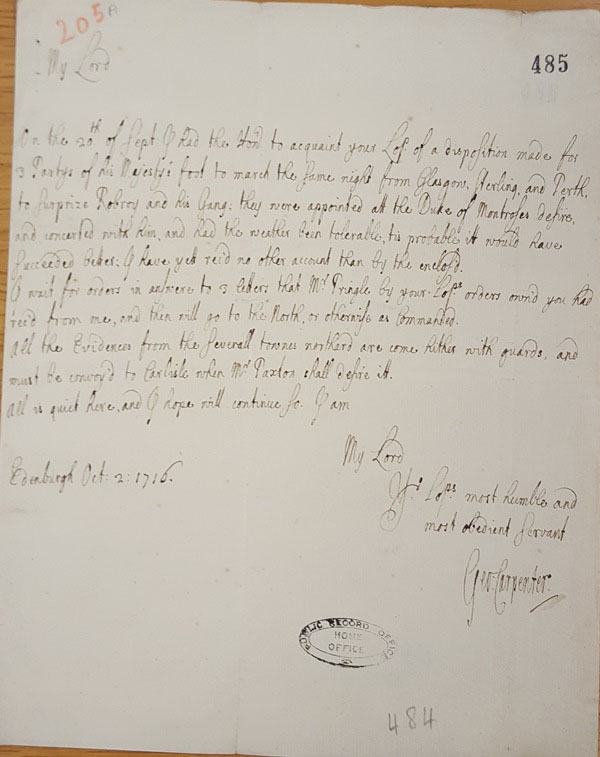 205A
485
My Lord
On the 20th of Sept I had the Honr. to acquaint your Lop. of a disposition made for
3 Partys of his Majesty's foot to march the same night from Glasgow, Sterling, and Perth,
to surprize Robroy and his Gang; they were appointed att the Duke of Montroses desire,
and concerted with him, and had the weather been tolerable, tis probable itt would have
succeeded better; I have yett rec'd no other account than by the enclos'd.
I wait for orders in answere to 3 letters that Mr. Pringle by your Lops. orders own'd you had
rec'd from me, and then will go to the North, or otherwise as Commanded.
All the Evidences from the severall townes northerd are come hither with guards, and
must be convoy'd to Carlisle when Mr. Paxton shall desire itt.
All is quiet here, and I hope will continue so. I am
My Lord
Edenburgh Oct: 2: 1716.
Yr. Lops. most humble and
most obedient servant
Geo: Carpenter.
PUBLIC RECORD OFFICE
HOME
OFFICE
484